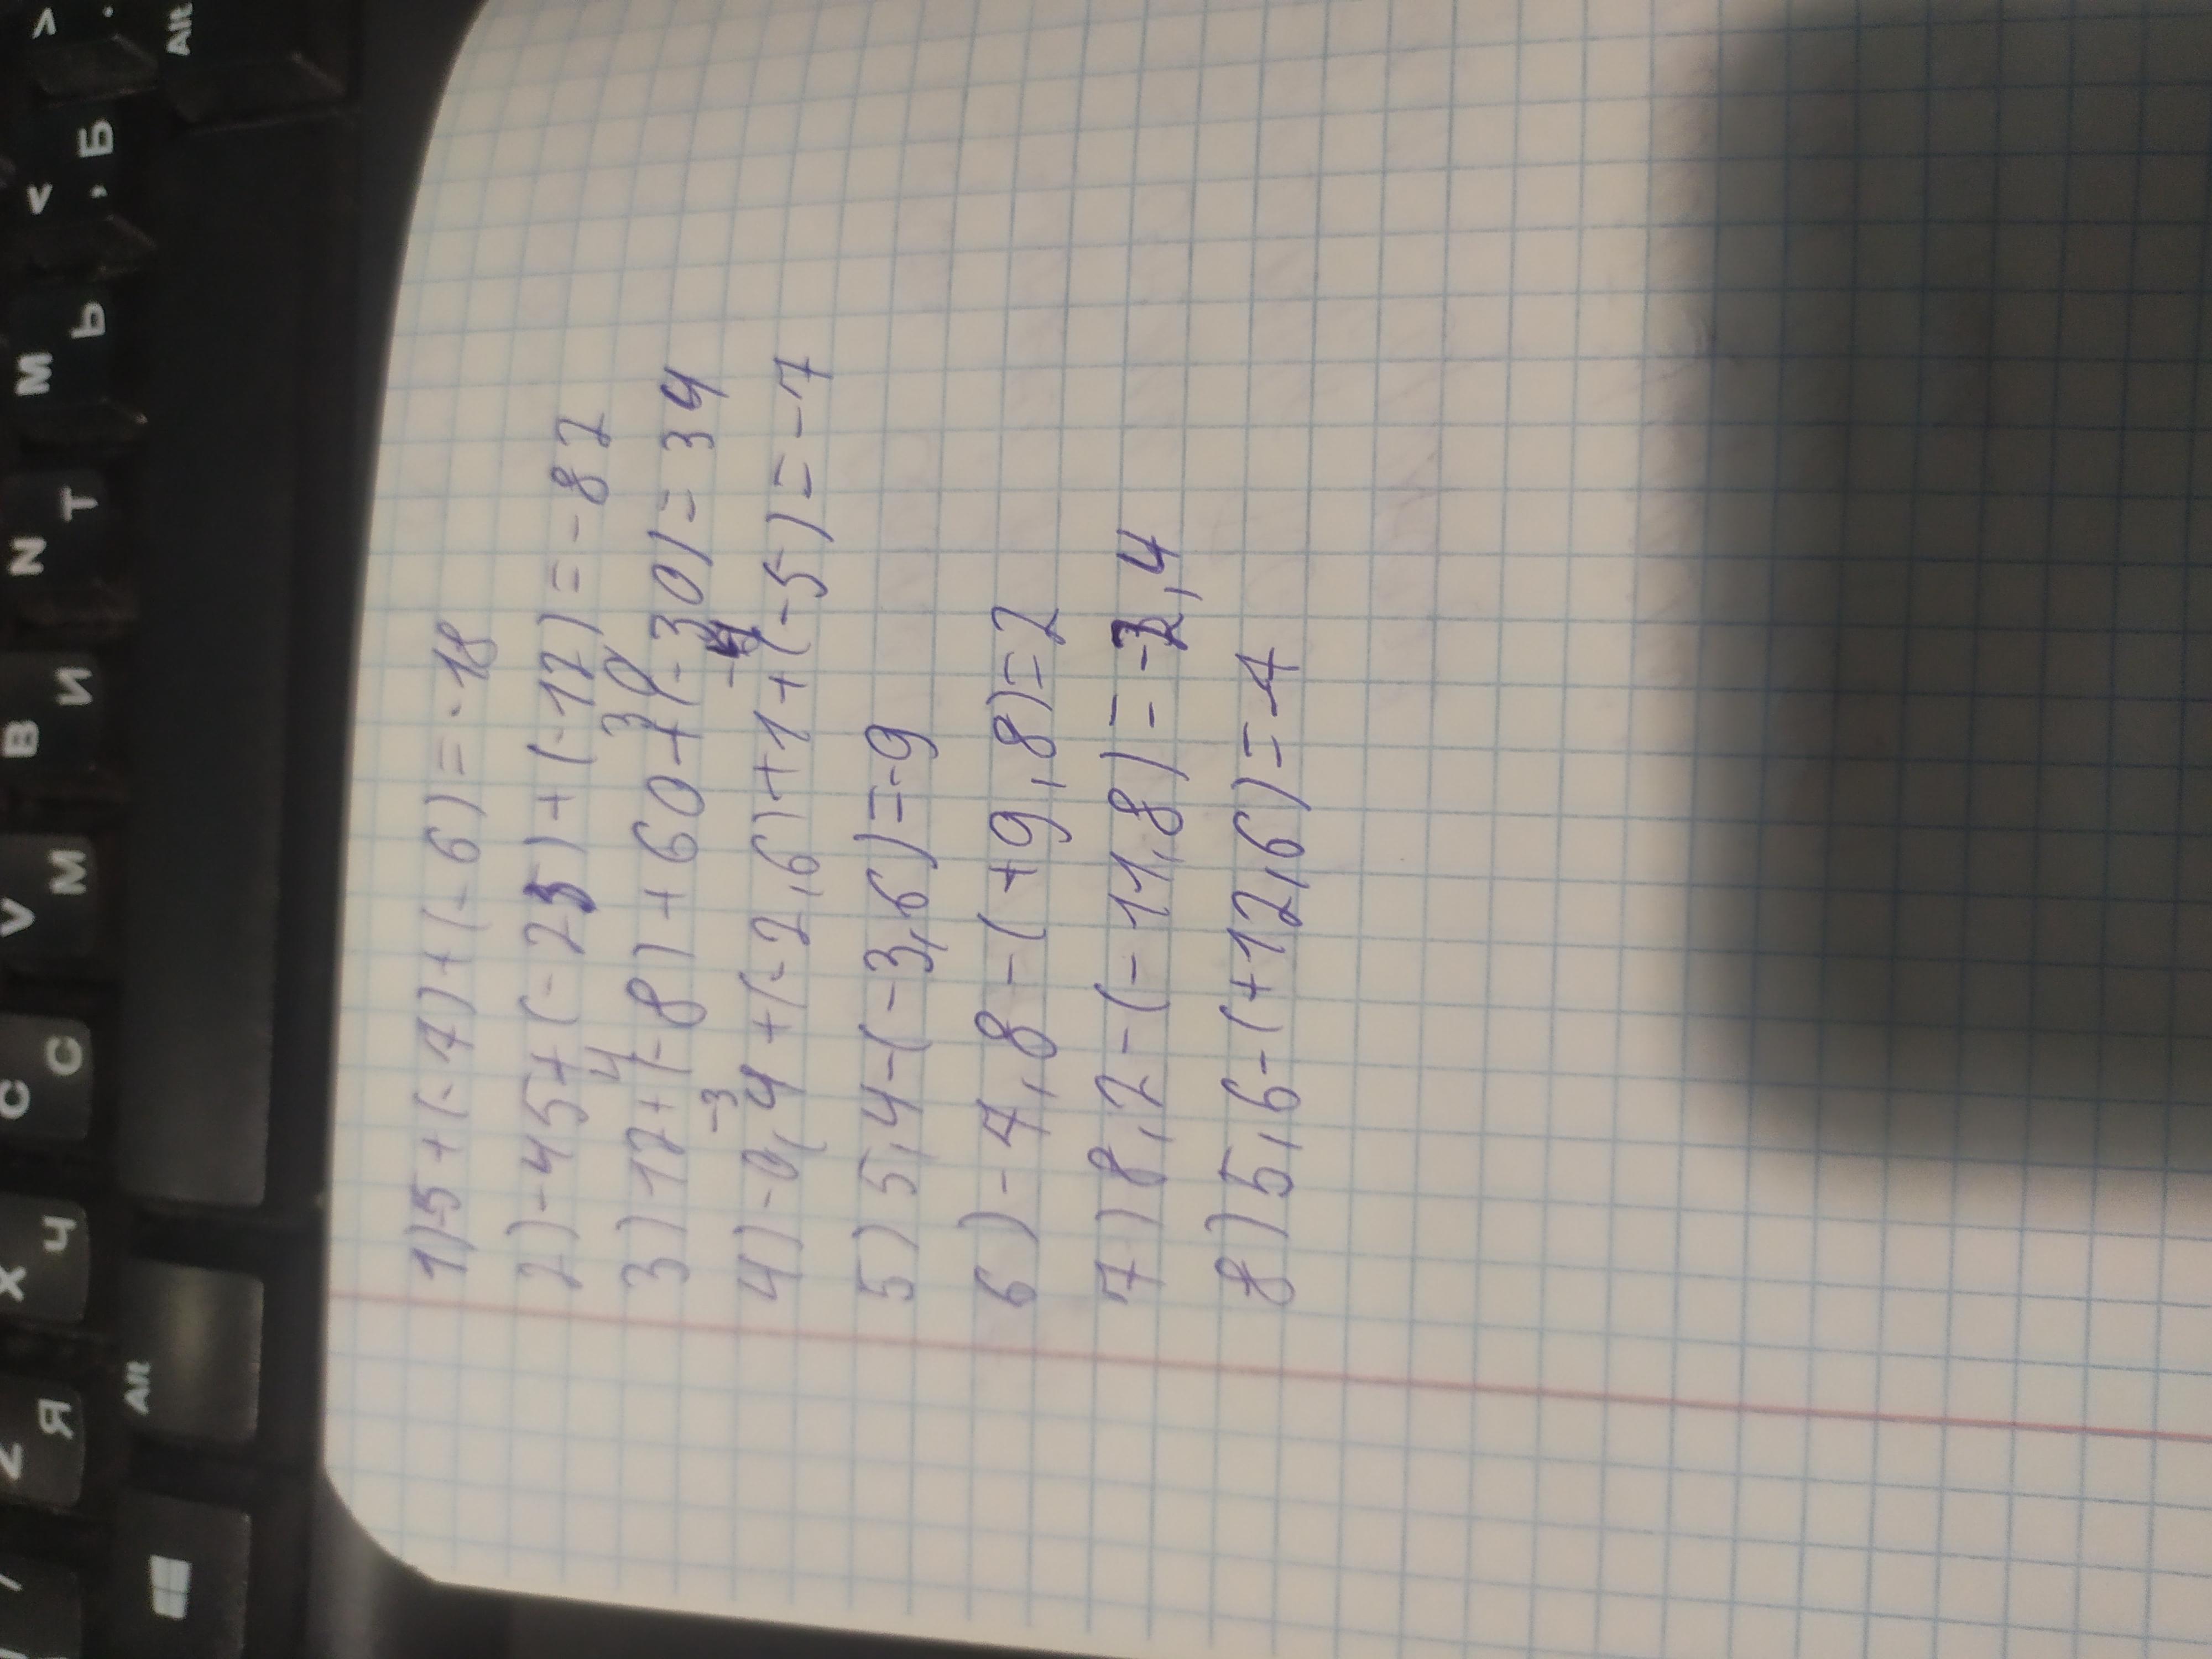 1)-5+(-7)+(-6)=-18
2)-45+(-25)+(-17)=-87
4 30
3)12+(-8)+60+(-30)=34
-3 -4
4)-0,4+(-2,6)+1+(-5)=-7
5)5,4-(-3,6)=-9
6)-7,8-(+9,8)=2
7)8,2-(-11,8)=-3,4
8)5,6-(+12,6)=-7
> .
Alt
< , Б
M Ь
N T
B И
V М
C С
X Ч
Z Я
Alt